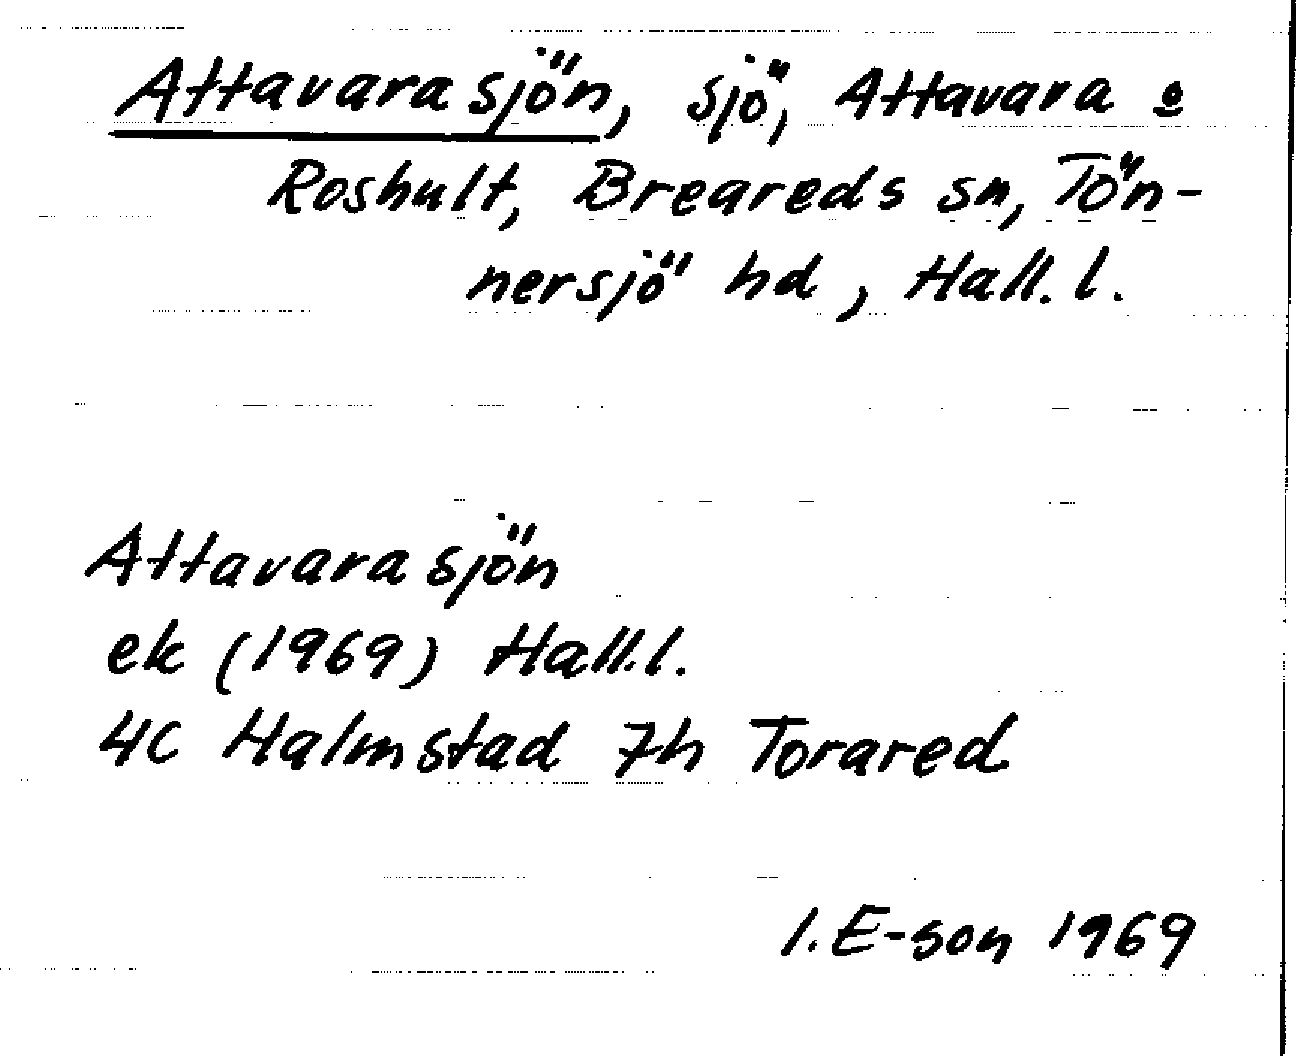 Attavarasjön, sjö, Attavara o
Roshult, Breareds sn, Tön-
nersjö hd, Hall. l.
Attavarasjön
ek (1969) Hall. l.
4C Halmstad 7h Torared
I. E-son 1969